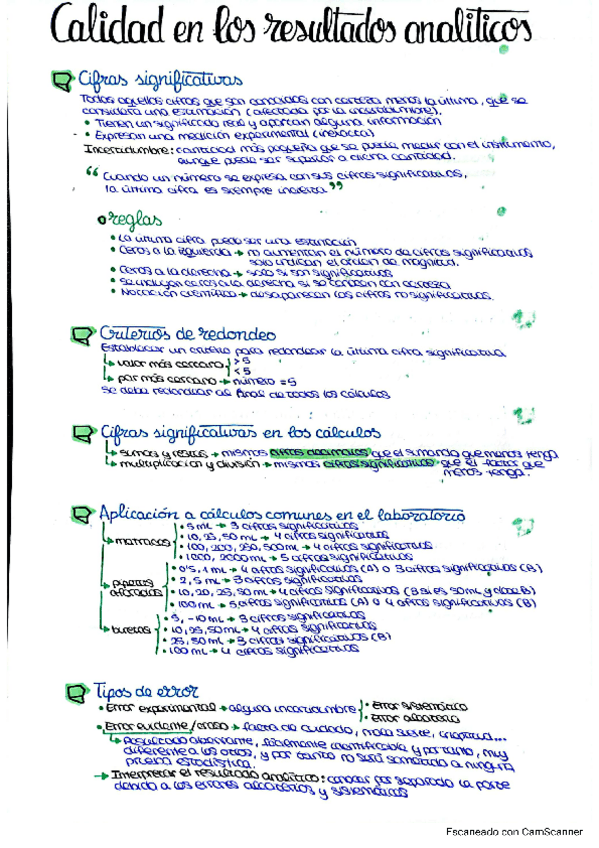 Calidad en los resultados analíticos
Cifras significativas
Todas aquellas cifras que son conocidas con certeza menos la última, que se
considera una estimación (afectada por la incertidumbre).
• Tienen un significado real y aportan alguna información
• Expresan una medición experimental (inexacta)
Incertidumbre: cantidad más pequeña que se puede medir con el instrumento,
aunque puede ser superior a dicha cantidad.
“ Cuando un número se expresa con sus cifras significativas,
la última cifra es siempre incierta ”
reglas
• La última cifra puede ser una estimación
• Ceros a la izquierda → no aumentan el número de cifras significativas
solo indican el orden de magnitud.
• Ceros a la derecha → solo si son significativos
• Se incluyen ceros a la derecha si se conocen con certeza
• Notación científica → desaparecen las cifras no significativas.
Criterios de redondeo
Establecer un criterio para redondear la última cifra significativa
↳ valor más cercano > 5
< 5
↳ par más cercano → número = 5
Se debe redondear al final de todos los cálculos
Cifras significativas en los cálculos
↳ sumas y restas → mismas cifras decimales que el sumando que menos tenga
↳ multiplicación y división → mismas cifras significativas que el factor que
menos tenga.
Aplicación a cálculos comunes en el laboratorio
• 5 mL → 3 cifras significativas
matraces • 10, 25, 50 mL → 4 cifras significativas
• 100, 200, 250, 500 mL → 4 cifras significativas
• 1000, 2000 mL → 5 cifras significativas
• 0'5, 1 mL → 4 cifras significativas (A) o 3 cifras significativas (B)
pipetas • 2, 5 mL → 3 cifras significativas
aforadas • 10, 20, 25, 50 mL → 4 cifras significativas (3 si es 50 mL y clase B)
• 100 mL → 5 cifras significativas (A) o 4 cifras significativas (B)
• 5, -10 mL → 3 cifras significativas
buretas • 10, 25, 50 mL → 4 cifras significativas
• 25, 50 mL → 3 cifras significativas (B)
• 100 mL → 4 cifras significativas
Tipos de error
• Error experimental → alguna incertidumbre • Error sistemático
• Error aleatorio
• Error evidente/craso → falta de cuidado, mala suerte, ineptitud...
↳ Resultado aberrante, fácilmente identificable y por tanto, muy
diferente a los otros, y por tanto no será sometido a ninguna
prueba estadística.
→ Interpretar el resultado analítico: conocer por separado la parte
debida a los errores aleatorios y sistemáticos
Escaneado con CamScanner